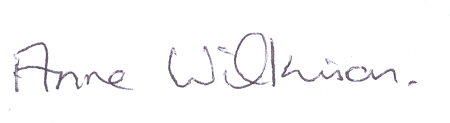 Anne Wilkinson.